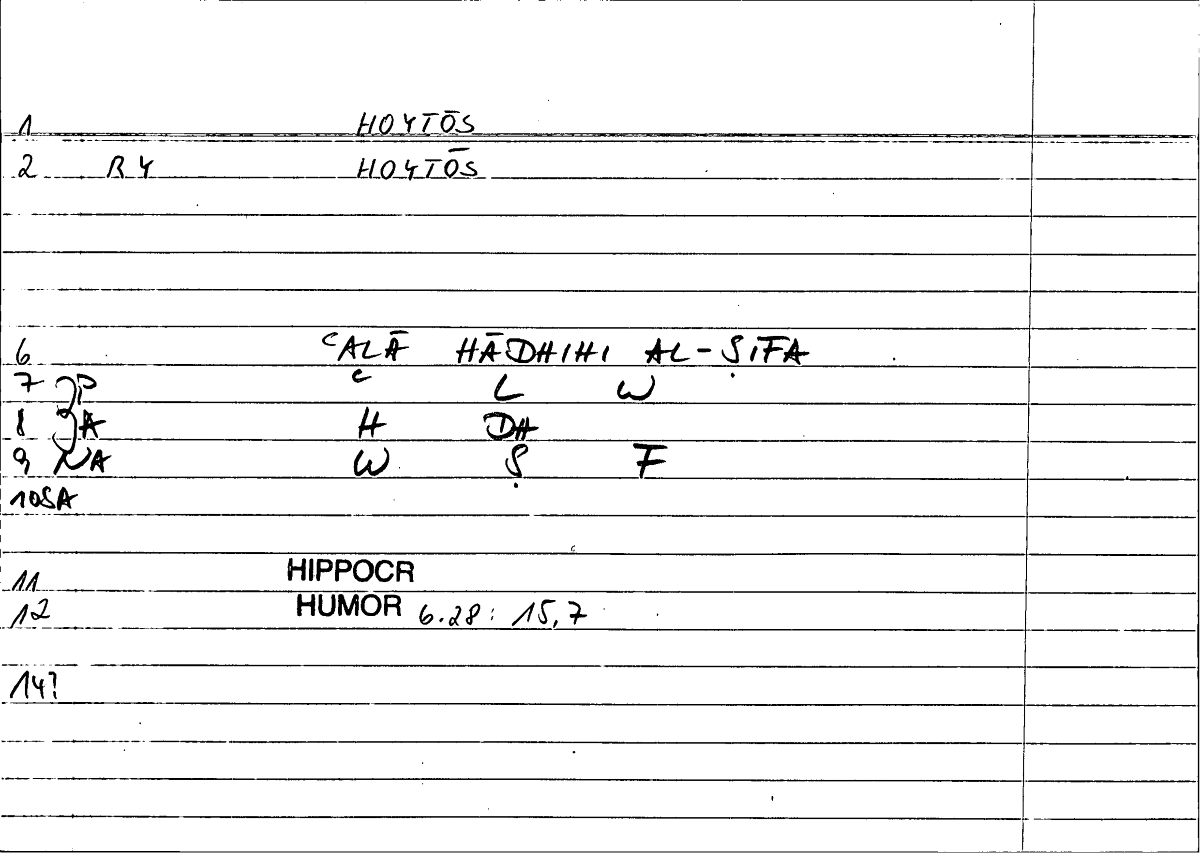 1 HOYTŌS
2 RY HOYTŌS
6 ʿALĀ HĀDHIHI AL-ṢIFA
7 P ʿ L W
8 A H DH
9 NA W Ṣ F
10 SA
11 HIPPOCR
12 HUMOR 6.28: 15,7
14?